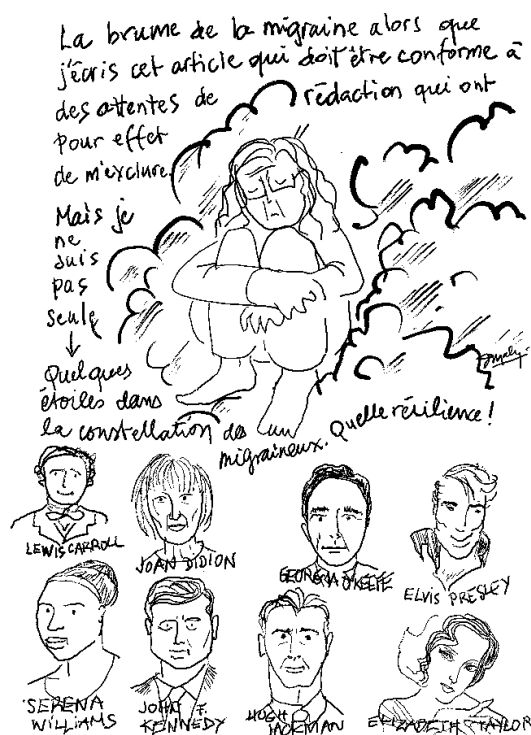 La brume de la migraine alors que
j'écris cet article qui doit être conforme à
des attentes de rédaction qui ont
pour effet
de m'exclure.
Mais je
ne
suis
pas
seule
Quelques
étoiles dans
la constellation des un
migraineux. Quelle résilience!
LEWIS CARROLL
JOAN DIDION
GEORGIA O'KEEFE
ELVIS PRESLEY
SERENA
WILLIAMS
JOHN F.
KENNEDY
HUGH
JACKMAN
ELIZABETH TAYLOR